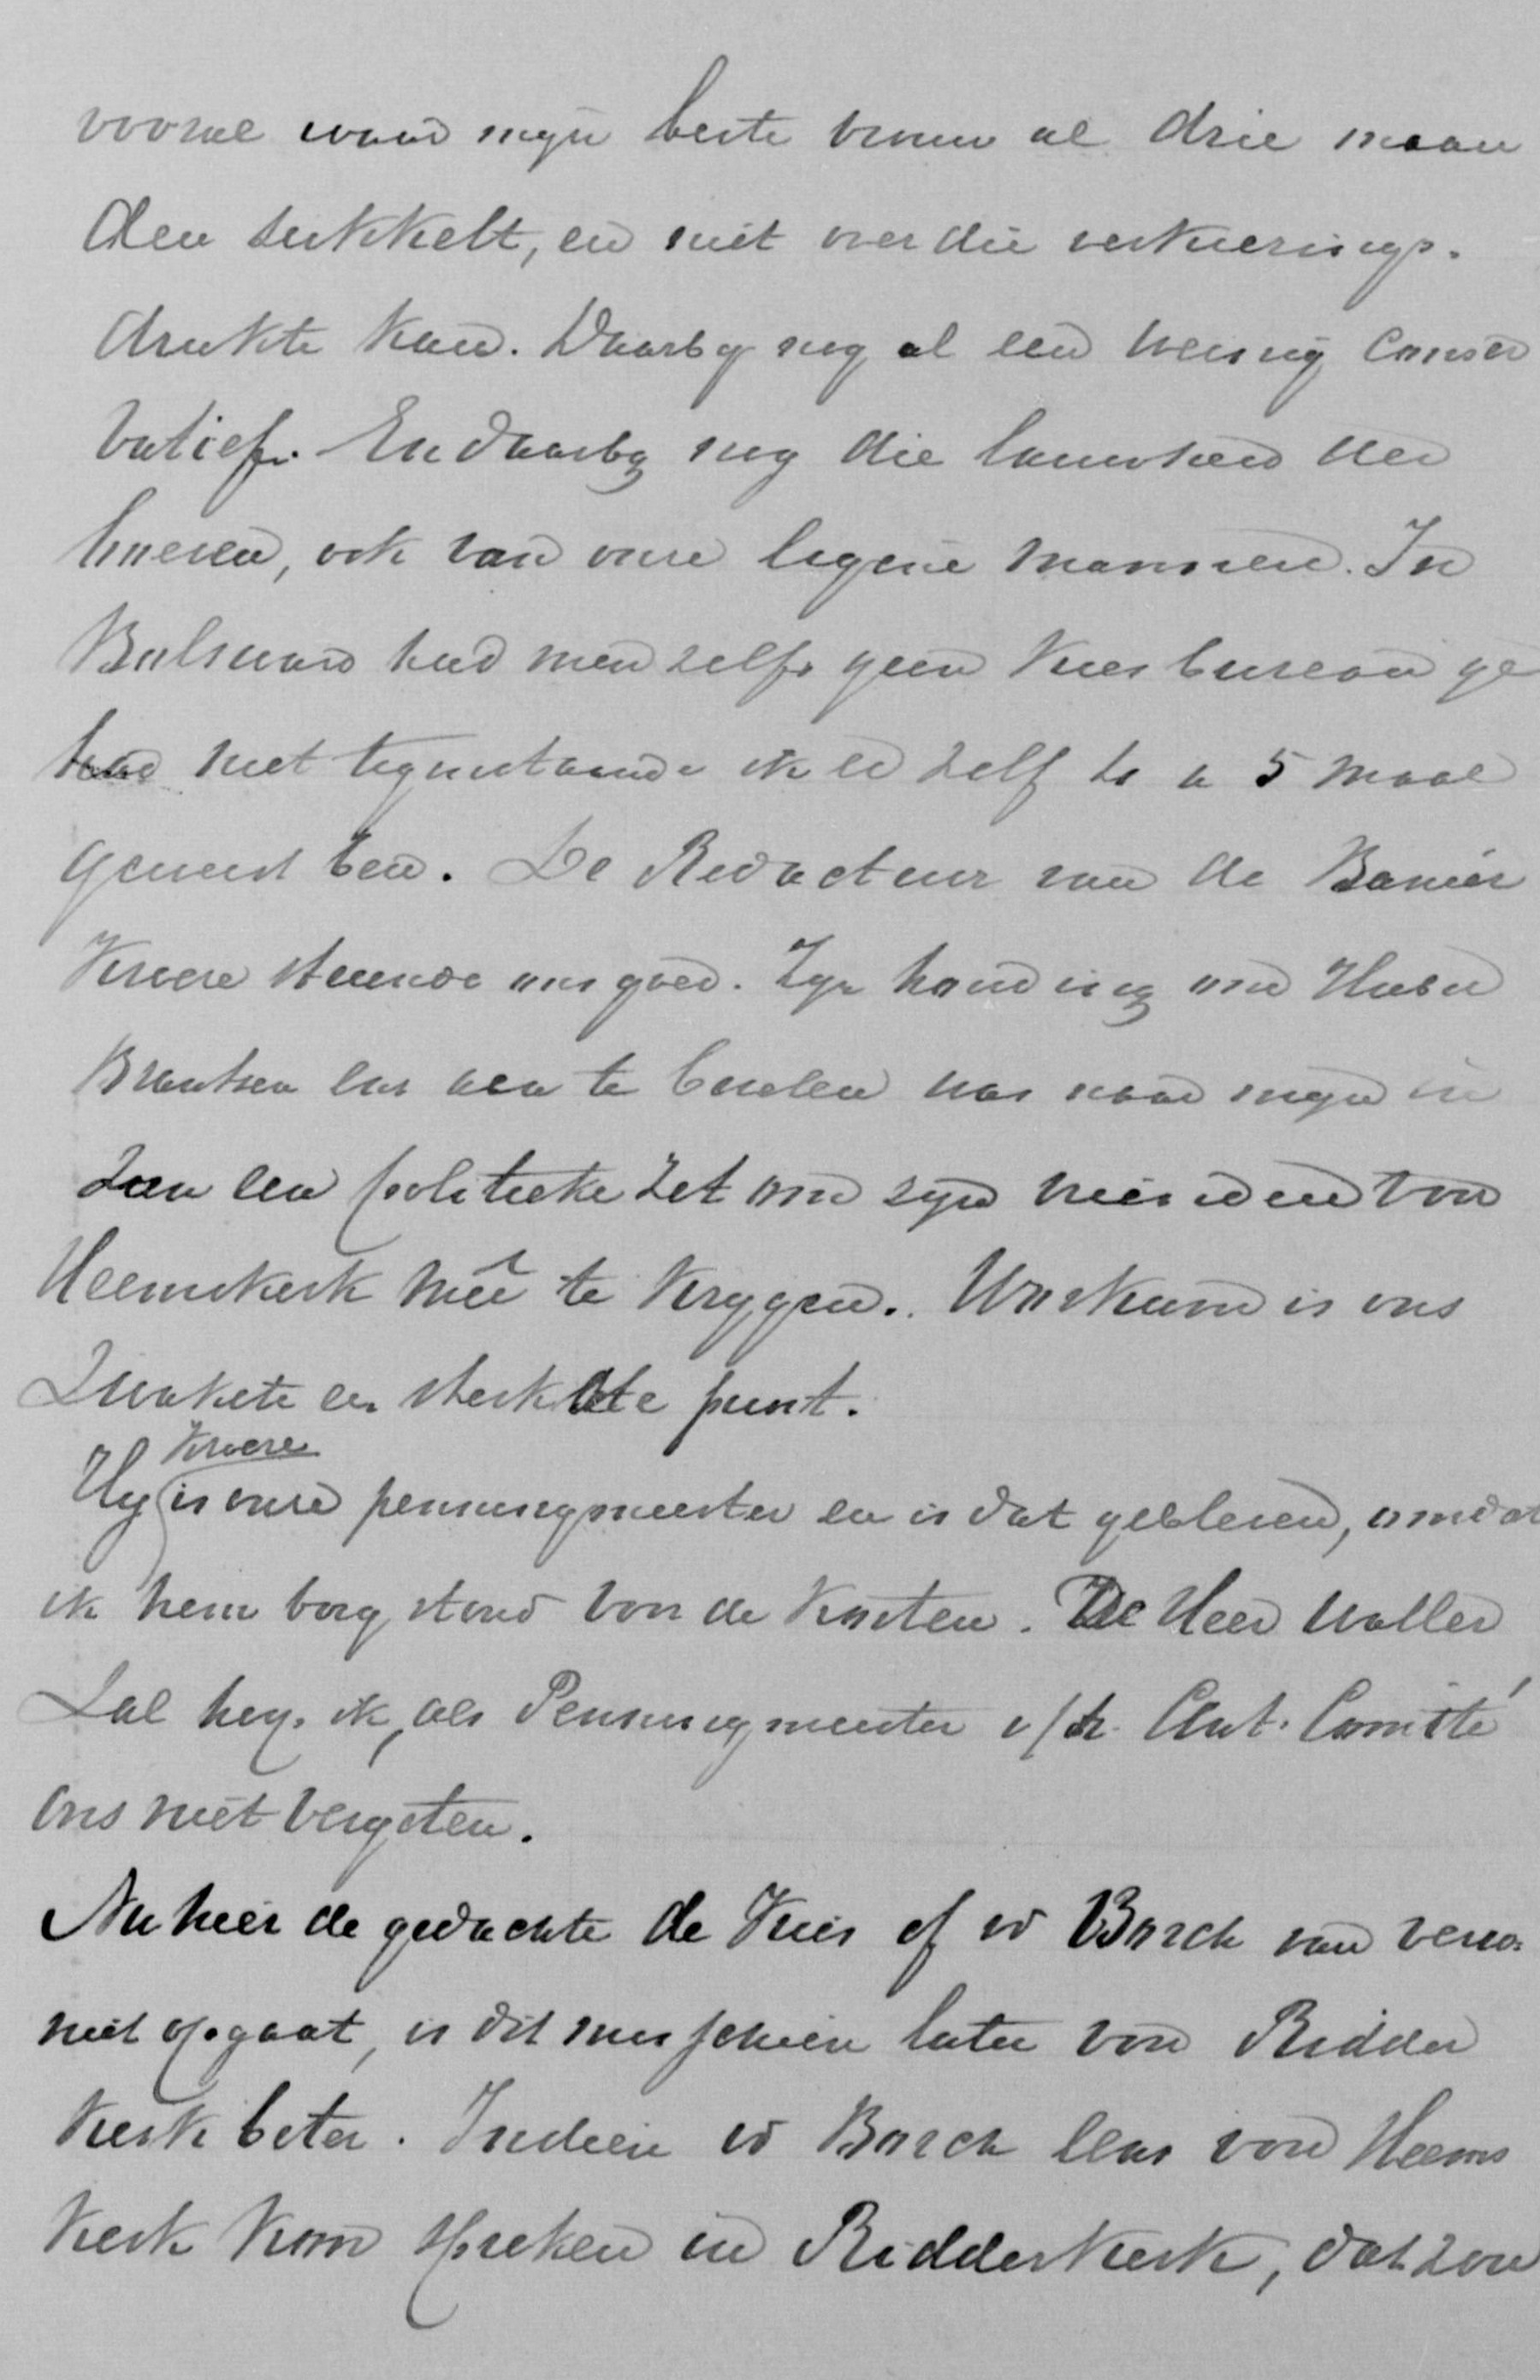 vooral waar mijn beste vrouw al drie maan
den sukkelt, en niet over die verkiezings-
drukte kan. Daarby nog al een weinig Conser
vatief. En daarby nog die lauwheid der
boeren, ook van onze eigene mannen. In
Bolsward had men zelfs geen Kiesbureau ge
had niet tegenstaande ik er zelf 4 a 5 maal
geweest ben. De Redacteur van de Banier
Kroese steunde ons goed. Zyn houding om Huber
Brantsen eens aan te bevelen was naar myn in
zien een politieke zet om zyn vrienden voor
Heemskerk meê te krygen. Workum is ons
Zwakste en sterkste punt.
Hy Kroese is onze penningmeester en is dat gebleven, omdat
ik hem borg stond voor de Kosten. De Heer Waller
Zal hoop ik, als Penningmeester v/h Cent. Comité
ons niet vergeten.
Nu hier de gedachte de Vries of vd Borch van Verwo.
niet opgaat, is dit misschien later voor Ridder
kerk beter. Indien vd Borch eens voor Heems
kerk kon spreken in Ridderkerk, dat zou